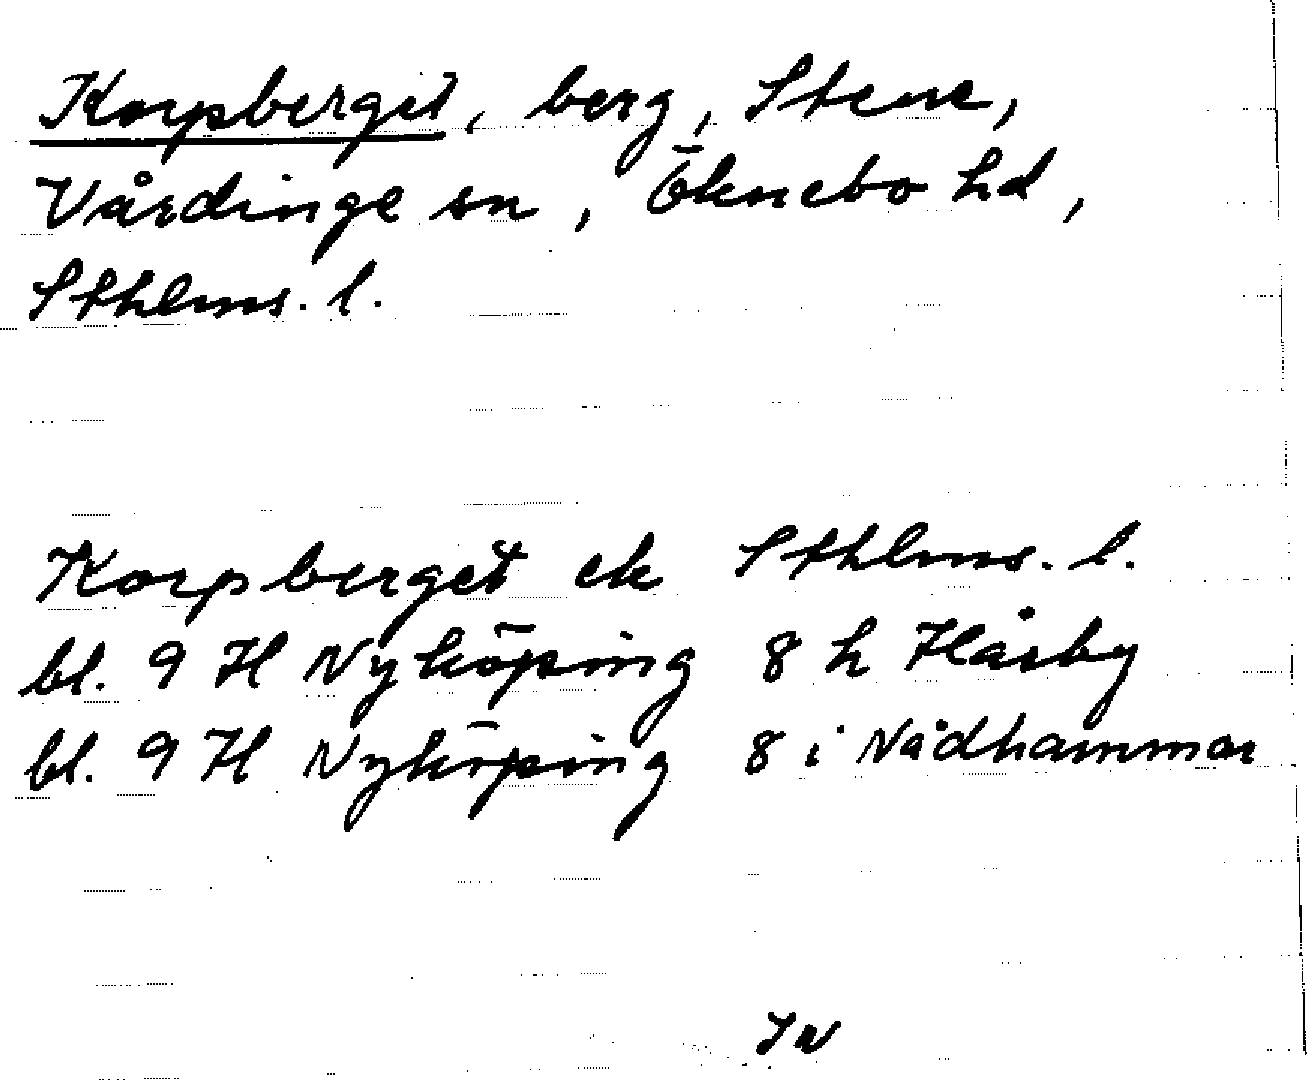 Korpberget, berg, Stene,
Vårdinge sn, Öknebo hd,
Sthlms. l.
Korpberget ek Sthlms. l.
bl. 9 H Nyköping 8 h Håsby
bl. 9 H Nyköping 8 i Nådhammar